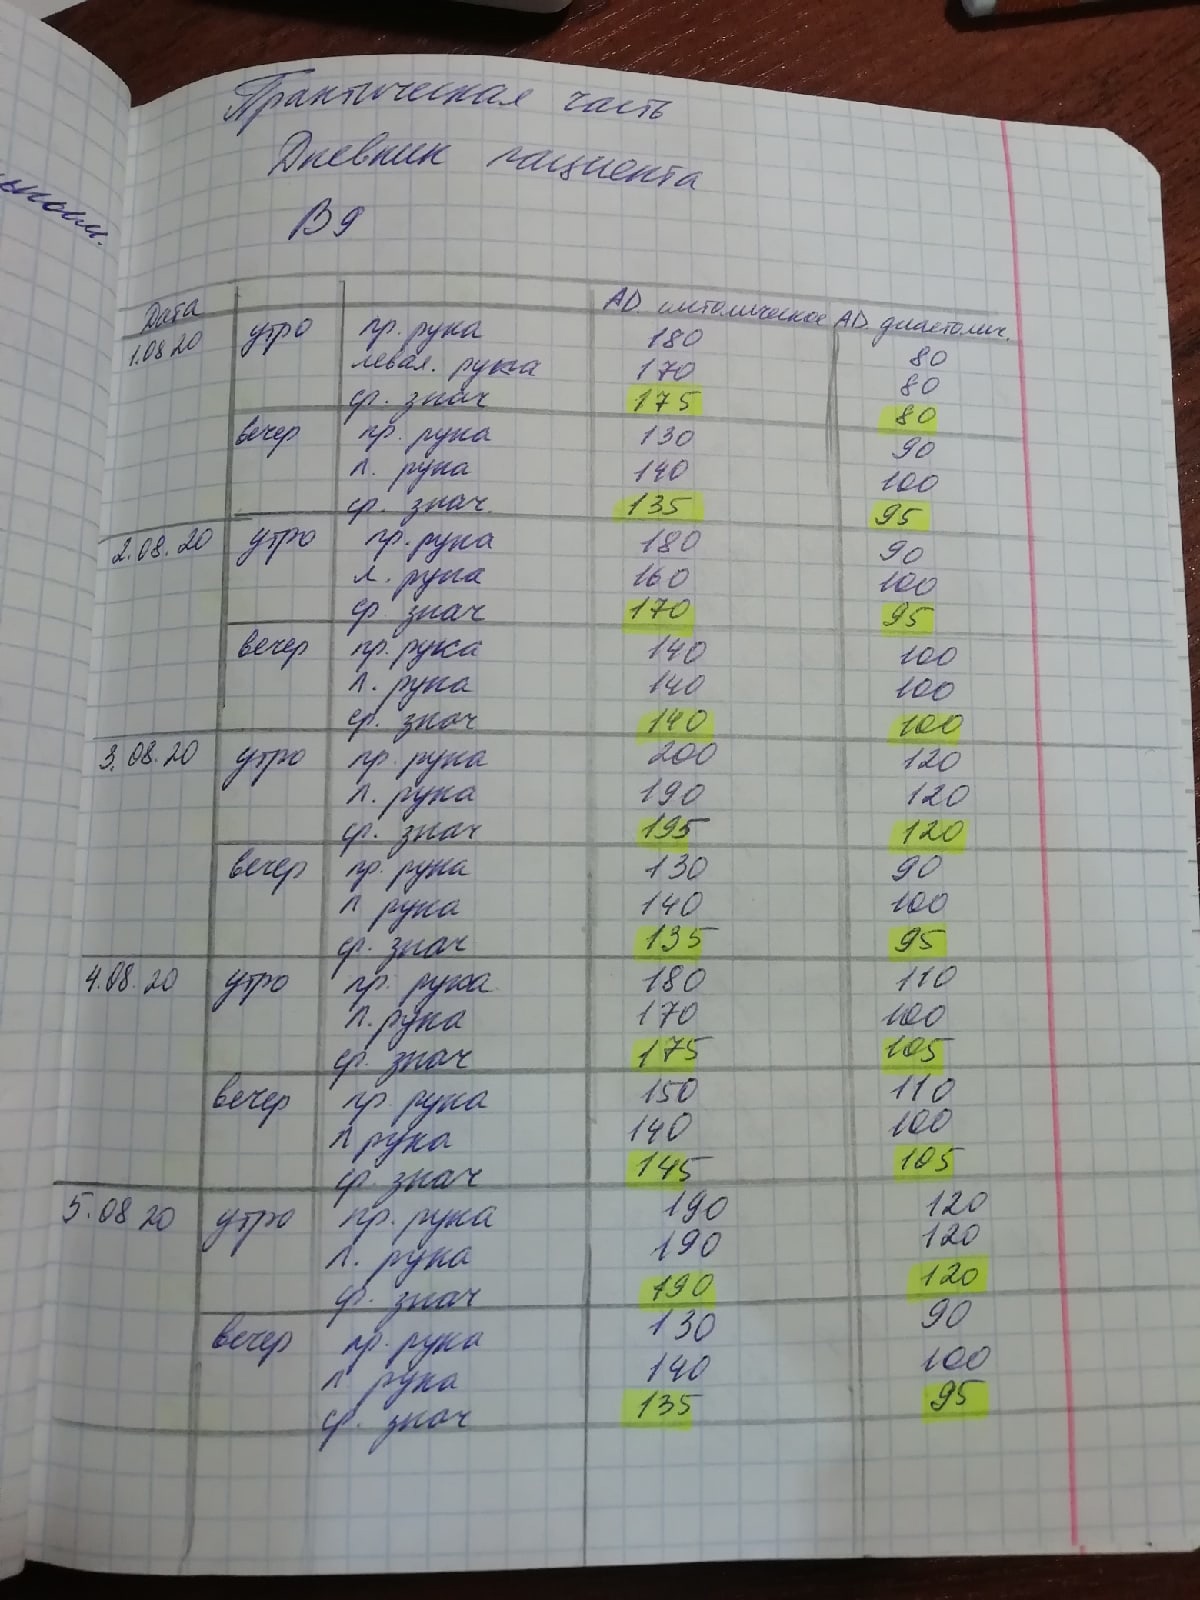 ьным.
Практическая часть
Дневник пациента
В9
Дата АД систолическое АД диастолич.
1.08 20 утро пр. рука 180 80
левая. рука 170 80
ср. знач 175 80
вечер пр. рука 130 90
л. рука 140 100
ср. знач. 135 95
2.08.20 утро пр. рука 180 90
л. рука 160 100
ср знач 170 95
вечер пр. рука 140 100
л. рука 140 100
ср. знач 140 100
3.08.20 утро пр. рука 200 120
л. рука 190 120
ср. знач 195 120
вечер пр. рука 130 90
л рука 140 100
ср. знач 135 95
4.08.20 утро пр. рука 180 110
л. рука 170 100
ср. знач 175 105
вечер пр рука 150 110
л рука 140 100
ср. знач 145 105
5.08 20 утро пр. рука 190 120
л. рука 190 120
ср. знач 190 120
вечер пр. рука 130 90
л рука 140 100
ср. знач 135 95